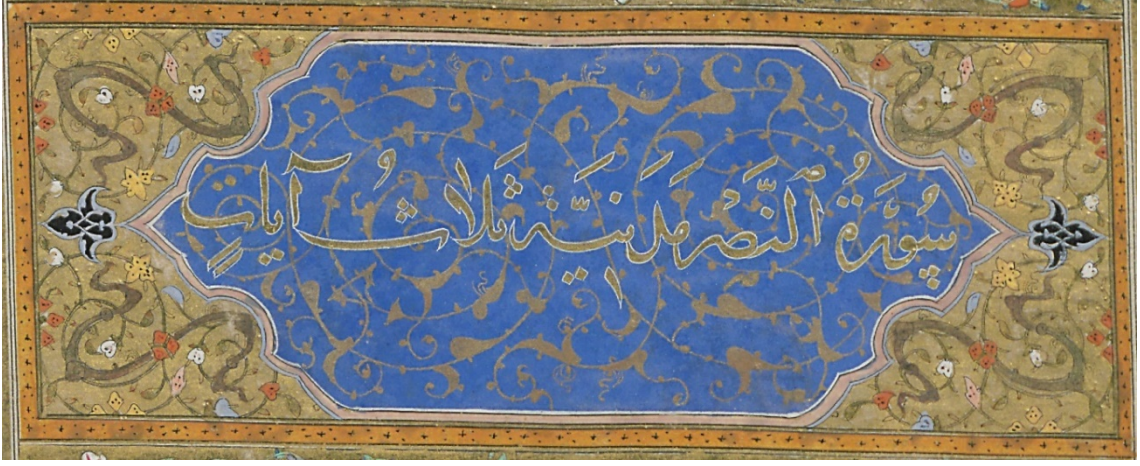 سُورَةُ ٱلنَّصْرِ مَدَنِيَّة ثَلاثُ آيَاتٍ